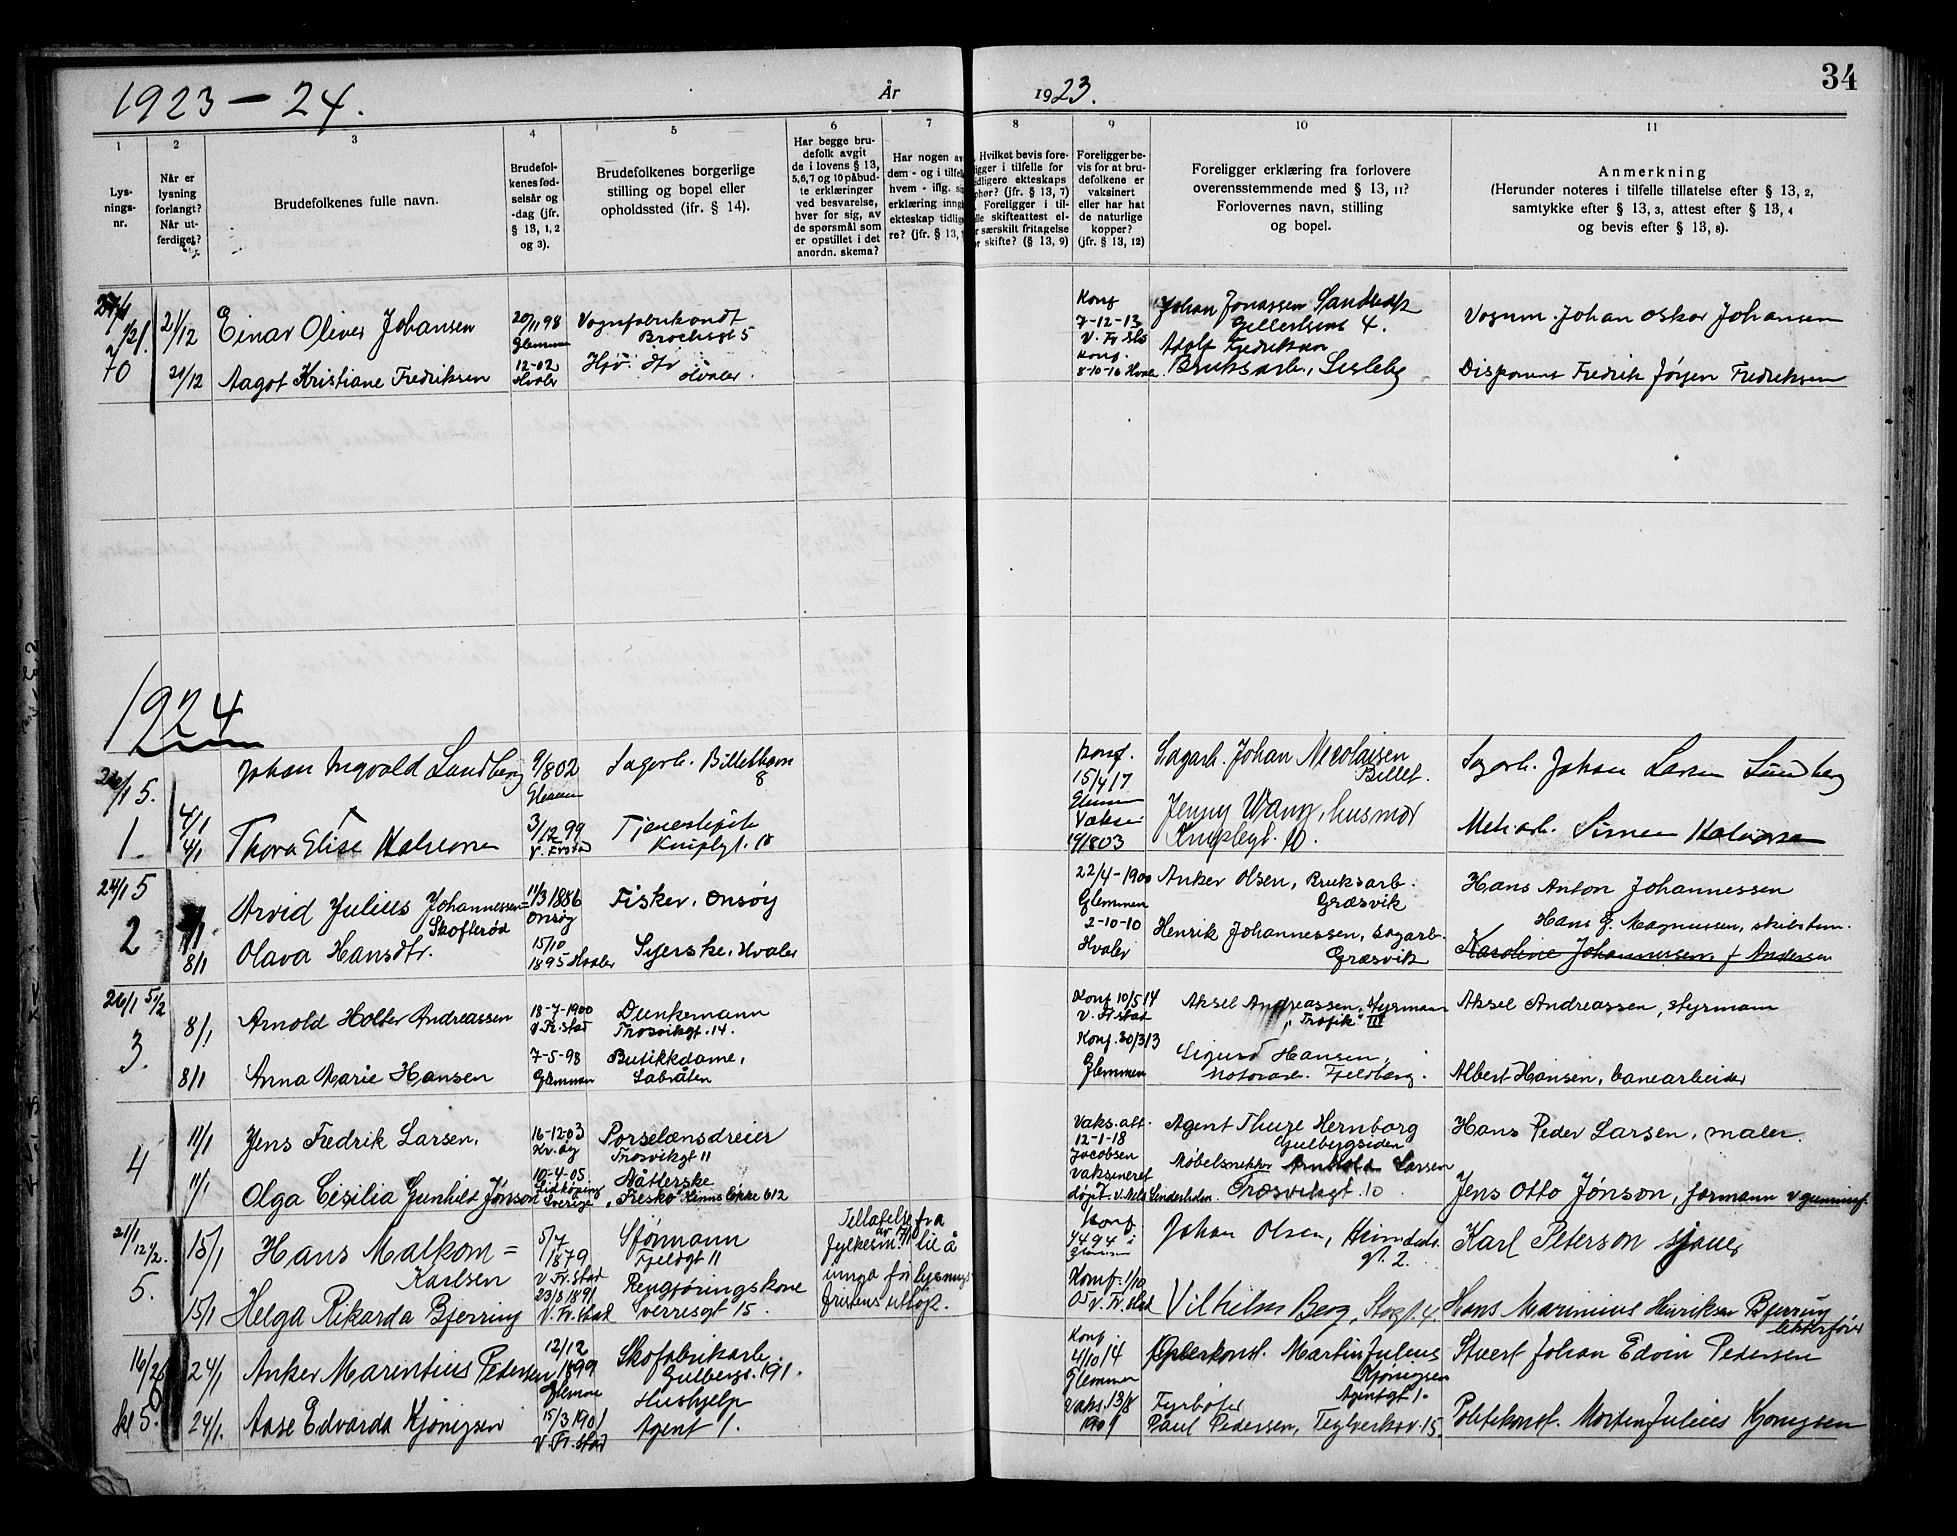 1923 - 24.
År
1923.
34
1
2
3
4
5
6
7
8
9
10
11
Lys-
nings-
nr.
Når er
lysning
forlangt?
Når ut-
ferdiget?
Brudefolkenes fulle navn.
Brudefol-
kenes fød-
selsår og
-dag (jfr.
§ 13, 1, 2
og 3).
Brudefolkenes borgerlige
stilling og bopel eller
opholdssted (ifr. § 14).
Har begge bru-
defolk avgit
de i lovens § 13,
5,6,7 og 10 påbud-
te erklæringer
ved besvarelse,
hver for sig, av
de spørsmål som
er opstillet i det
anordn. skema?
Har nogen av
dem - og i tilfelle
hvem - iflg. si
erklæring inng
ekteskap tidlig
re? (jfr. § 13,
Hvilket bevis fore-
ligger i tilfelle for
tidligere ekteskaps
ophør? (jfr. § 13, 7)
Foreligger i til-
felle skifteattest el-
r særskilt fritagelse
or skifte? (§ 13, 9)
Foreligger be-
vis for at bru-
defolkene er
vaksinert
eller har hat
de naturlige
kopper?
(jfr. § 13, 12)
Foreligger erklæring fra forlovere
overensstemmende med § 13, 11?
Forlovernes navn, stilling
og bopel.
Anmerkning
(Herunder noteres i tilfelle tillatelse efter § 13, 2,
samtykke efter § 13, 3, attest efter § 13, 4
og bevis efter § 13, 8).
70
21/12
Einar Oliver Johansen
20/11 98
Glemmen
Vognfabrikandt
Brochsgt 5
Konf
7-12-13
V. Fr.sta
Johan Jonassen
4.
Vognm. Johan Oskar Johansen
21/12
Aagot Kristiane Fredriksen
12-02
Hvaler
Hvaler
Konf.
8-10-16 Hvaler
Adolf Fredriksen
Bruksarb., Lisleby
Disponent Fredrik Jörgen Fredriksen
1924
1
4/1
Johan Ingvald Lundberg
9/8 02
Glemmen
Sagarb.
8
Konf.
15/4 17
Glemmen
Sagarb. Johan Nicolaisen
Billet.
Sagarb. Johan Larsen Lundberg
4/1
Thora Elise Halvorsen
3/12 99
V. Fr.stad
Kniplgt. 10
Vaksin
19/8 03
Jenny Wang, husmor
Kniplegt. 10.
Simen Halvorsen
24/1 5
2
11/1
Arvid Julius Johannessen =
Skofterød
11/3 1886
Onsøy
Fisker, Onsøy
22/4-1900
Glemmen
Anker Olsen, Bruksarb.
Græsvik
Hans Anton Johannessen
8/1
Olava Hansdtr.
15/10
1895 Hvaler
Syerske, Hvaler
2-10-10
Hvaler
Henrik Johannessen, Sagarb.
Græsvik
Hans J. Magnussen,
Karoline Johannessen f Andersen
26/1 5 1/2
3.
8/1
Arnold Holter Andreassen
18-7-1900
V. Fr. stad
Dunkemann
Trosvikgt. 14.
Konf 10/5 14
V. Fr stad
Aksel Andreassen, styrmann
"Trafik" III
Aksel Andreassen, styrmann
8/1
Anna Marie Hansen
7-5-98
Glemmen
Butikkdame,
Labråten
Konf. 30/3 13
Glemmen
Sigurd Hansen,
Motorarb. Fjeldberg.
Albert Hansen, banearbeider
4
11/1
Jens Fredrik Larsen,
16-12-03
Kr. øy
Porselænsdreier
Trosvikgt 11
Vaks. att.
12-1-18
Jacobsen
Agent Thure Hernborg
Gulbergsiden
Hans Peder Larsen, maler.
11/1
Olga Cisilia Gunhilt Jönson
10-4-05
Lidköping
Sverige
Nåtlerske
"Fresko" Kinns løkke 612
Vaksineret
døpt
Møbelsnekker Larsen
Græsvikgt. 10
Jens Otto Jönson, formann v gummif.
21/1
12 1/2.
5.
15/1
Hans Malkom =
Karlsen
5/7
1879
V Fr. stad
Sjømann
Fjeldgt 11
Tillatelse fra
fylkesm. av 17/10 til å
unga for lysnings
fristens utløp.
Konf
4 4 94 i
Glemmen
Johan Olsen,
gt. 2.
Karl Peterson sjauer
15/1
Helga Rikarda Bjerring
23/8 1891
V. Fr. stad
Rengjøringskone
Sverresgt 15.
Konf. 1/10
05 V. Fr. stad
Vilhelm Berg, Storgt. 4.
Hans Marinius Henriksen Bjerring
lekterfører
16/2
6
kl 5.
24/1
Anker Marentius Pedersen
12/12
1899
Glemme
Skofabrikarb.
Gulbergs. 191.
Konf
4/10 14
Glemmen
Overkonst. Martin Julius
Kjönigsen
Agentgt 1.
Stuert Johan Edvin Pedersen
24/1.
Aase Edvarda Kjönigsen
15/3 1901
V. Fr. stad
Hushjelp
Agent 1.
Vaks. 13/8
1901
Fyrbøter
Paul Pedersen, Teglverksv. 15.
Politikonst. Morten Julius Kjönigsen